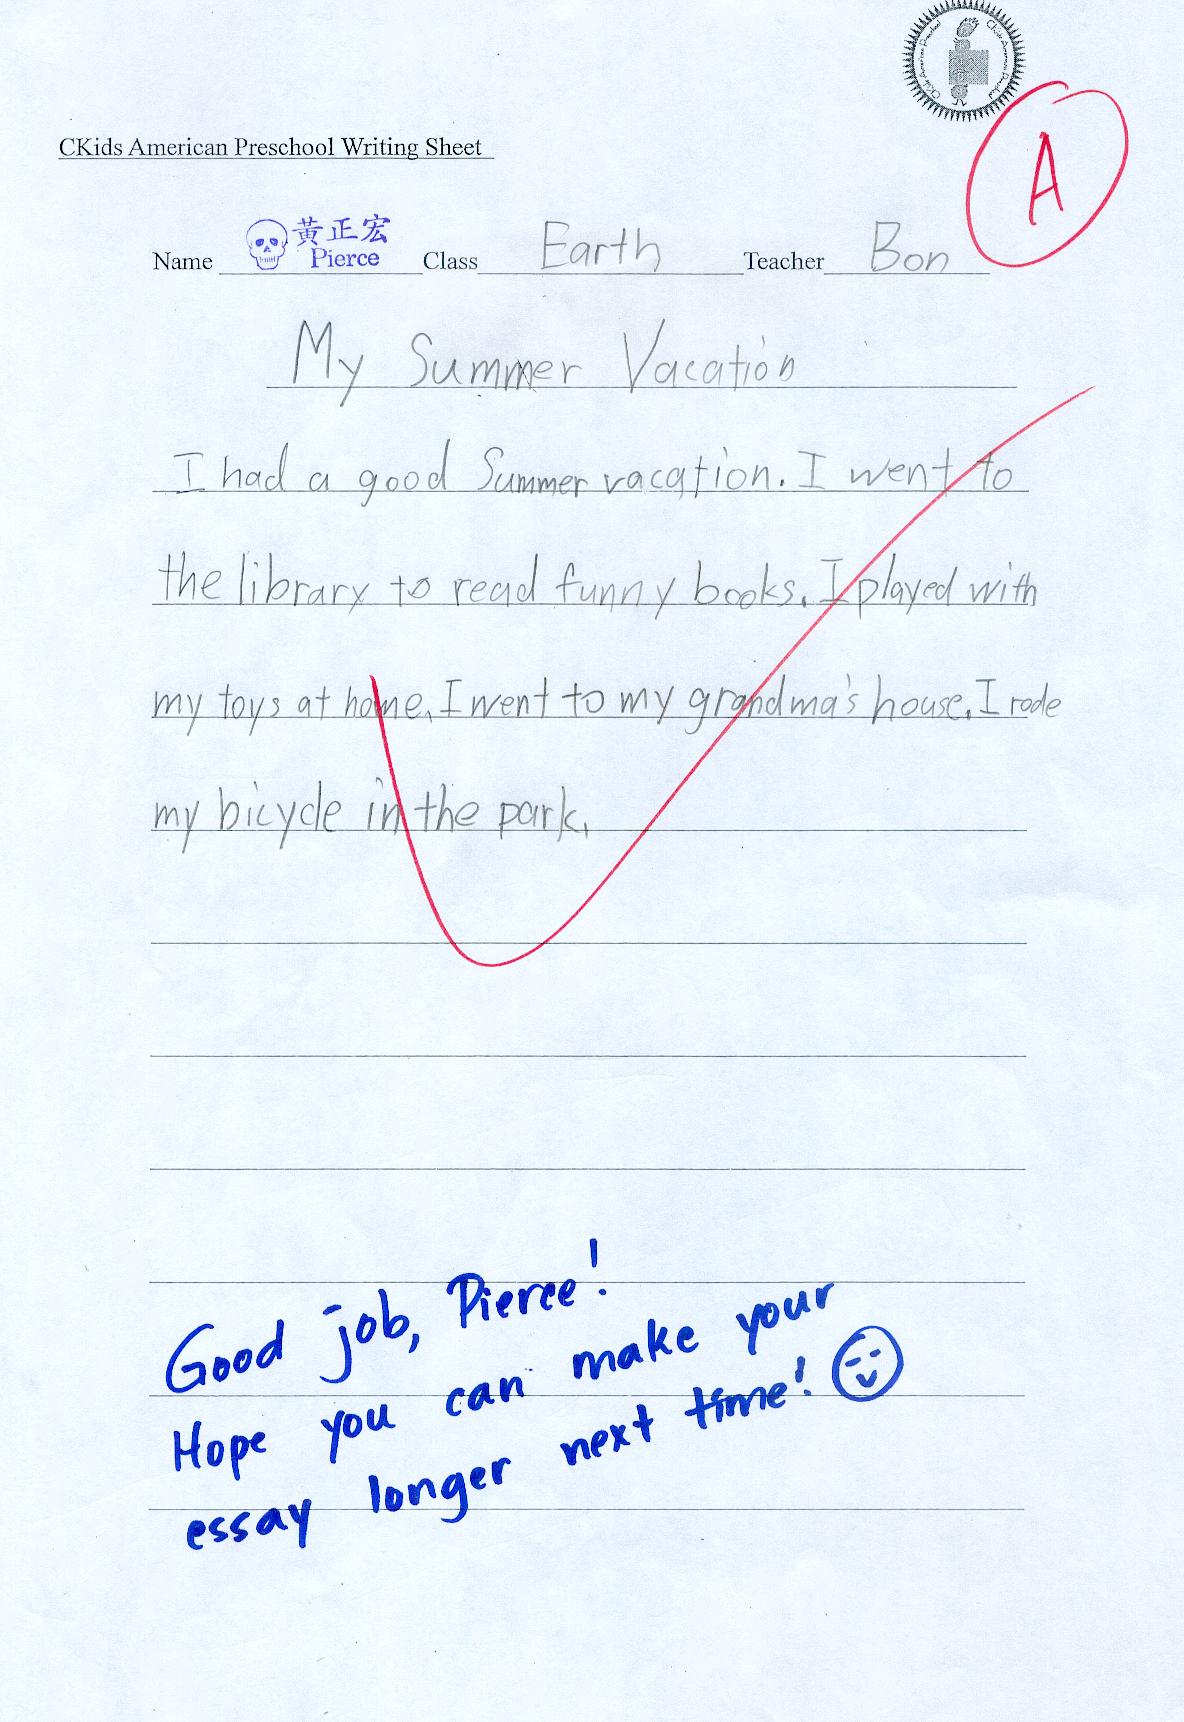 CKids American Preschool CKids American Preschool
A
CKids American Preschool Writing Sheet
黃正宏
Name Pierce Class Earth Teacher Bon
My Summer Vacation
I had a good Summer vacation. I went to
the library to read funny books. I played with
my toys at home. I went to my grandma's house. I rode
my bicycle in the park.
Good job, Pierce!
Hope you can make your
essay longer next time!